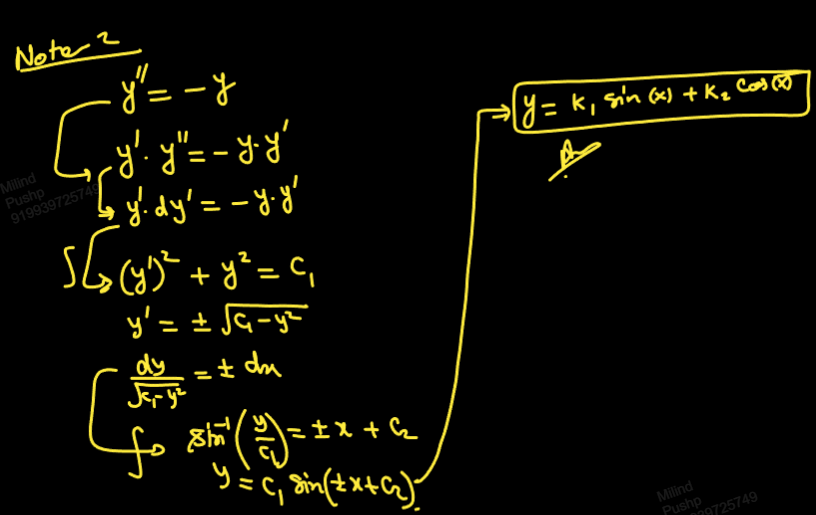 Note-2
y'' = -y
y'. y'' = -y.y'
y'. dy' = -y.y'
∫ (y')² + y² = C₁
y' = ± √C₁-y²
dy/√C₁-y² = ± dx
∫ sin⁻¹(y/C₁) = ± x + C₂
y = C₁ sin(±x+C₂).
y = K₁ sin(x) + K₂ cos(x)
Milind
Pushp
919939725749
Milind
Pushp
919939725749